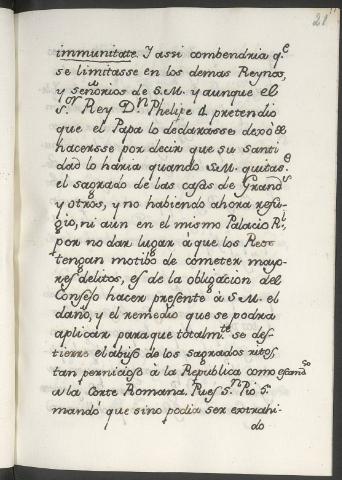 21
immunitate. Y assi combendria q.e
se limitasse en los demas Reynos,
y señorios de S.M. y aunque el
S.or Rey D.n Phelipe 4 pretendio
que el Papa lo declarasse dexò de
hacersse por decir que su Santi
dad lo haria quando S.M. quitasse
el sagrado de las casas de Grandes
y otros, y no habiendo ahora refu-
gio, ni aun en el mismo Palacio R.l
por no dar lugar à que los Reos
tengan motibo de cometer mayo-
res delitos, es de la obligacion del
Consejo hacer presente à S.M. el
daño, y el remedio que se podra
aplicar para que totalm.te se des-
tierre el abuso de los sagrados ritos,
tan pernicioso à la Republica como
a la Corte Romana. Pues S.n Pio 5.º
mandó que sino podia ser extrahi-
do